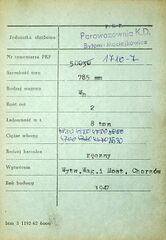 P.K.P.
Jednostka służbowa Parowozownia K.D.
Bytom-Maciejkowice
Nr inwentarza PKP 1710-7
Szerokość toru 785 mm
Rodzaj wagonu Wh
Ilość osi 2
Ładowność w t 8 ton
Ciężar własny
Rodzaj hamulca ręczny
Wytwórnia Wytw. Wag. i Most. Chorzów
Rok budowy 1947